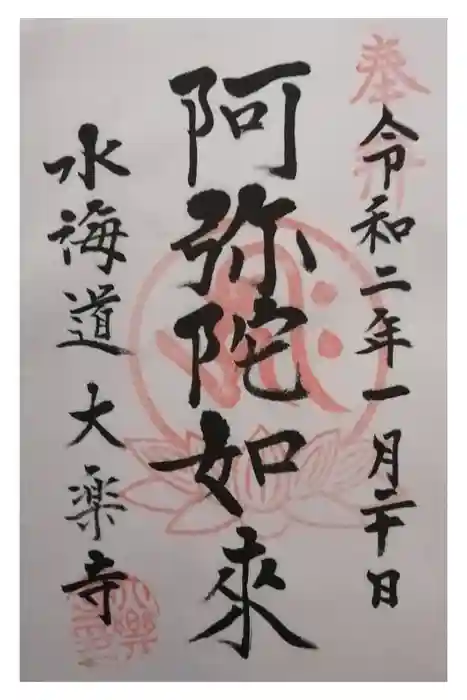 奉拝
令和二年一月二十日
阿弥陀如來
水海道 大楽寺